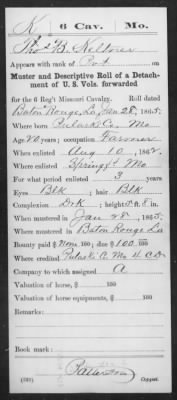 K 6 Cav. Mo.
Thos B.
Appears with rank of Pvt on
Muster and Descriptive Roll of a Detachment
of U. S. Vols. forwarded
for the 6 Reg't Missouri Cavalry. Roll dated
Baton Rouge, La, Jan 28, 1865.
Where born Pulaski Co, Mo.
Age 20 years; occupation Farmer
When enlisted Aug 10, 1862.
Where enlisted Springf'd Mo.
For what period enlisted 3 years.
Eyes Blk ; hair Blk
Complexion Drk ; height 5 ft. 8 in.
When mustered in Jan 28, 1865.
Where mustered in Baton Rouge La
Bounty paid $ none 100; due $ 100 100
Where credited Pulaski C. Mo 4. C.D.
Company to which assigned A
Valuation of horse, $ 100
Valuation of horse equipments, $ 100
Remarks:
Book mark:
(339) Copyist.